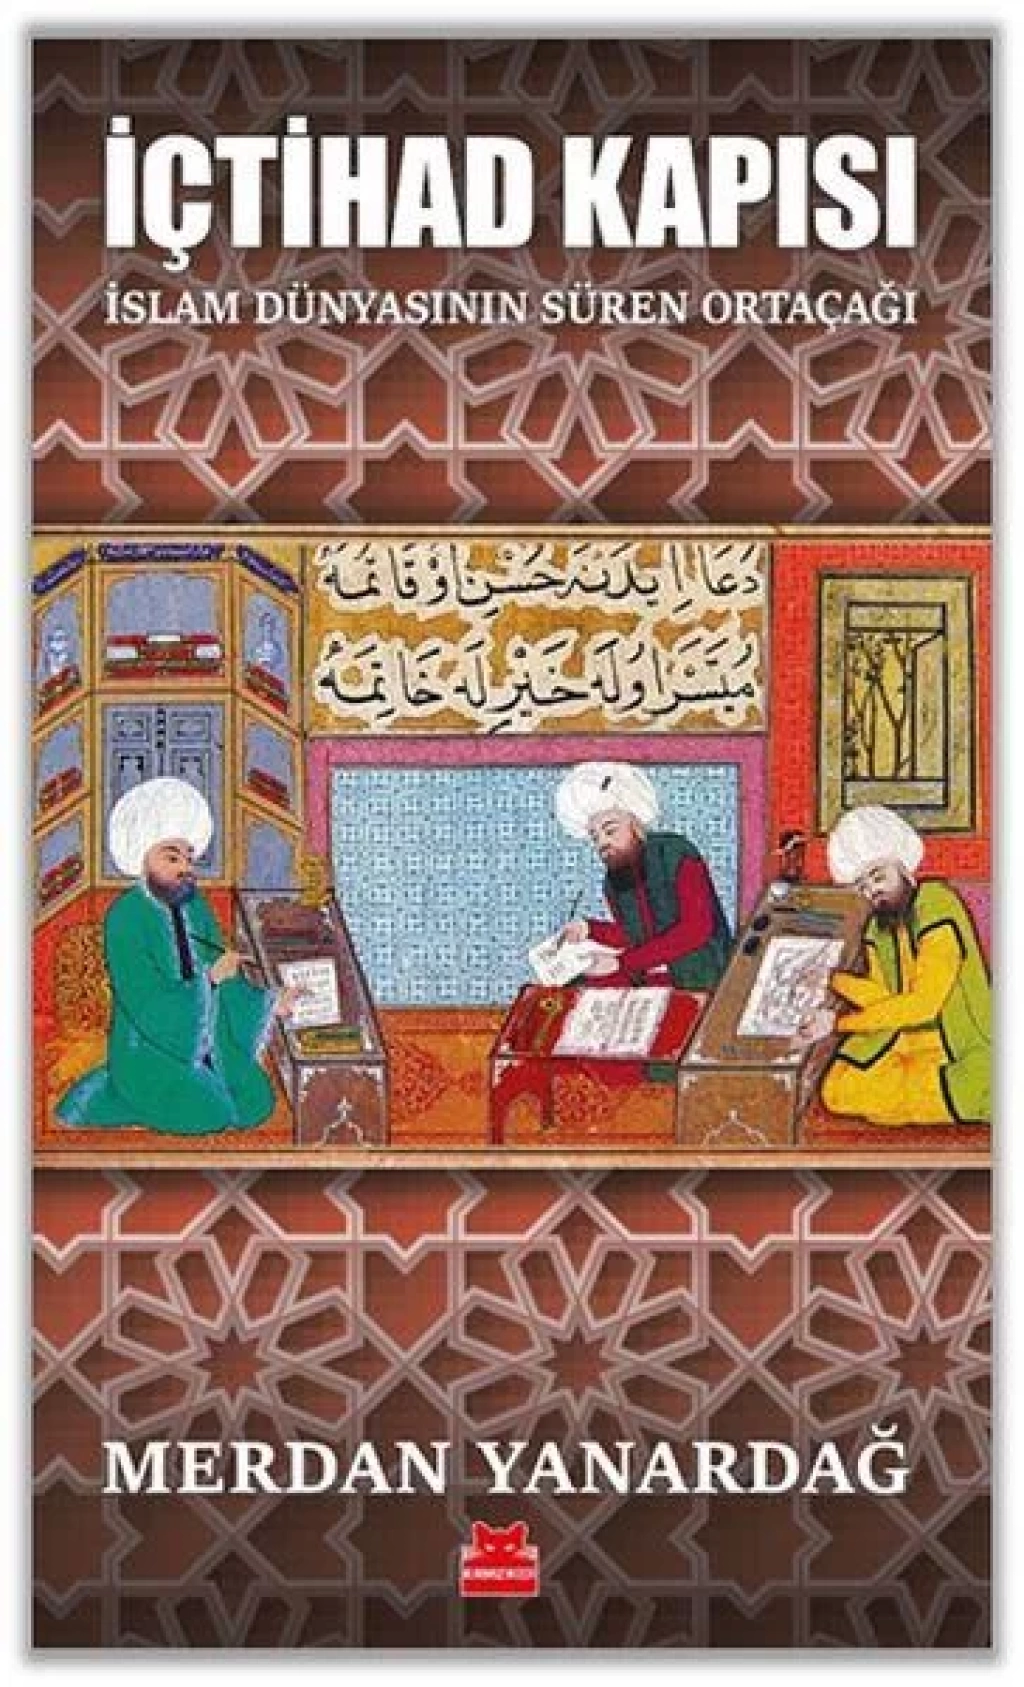 İÇTİHAD KAPISI
İSLAM DÜNYASININ SÜREN ORTAÇAĞI
دعا ایدنه حسن اوقاتمه
مُیَسَّر اوله خَیْرِلَه خَاتِمَه
MERDAN YANARDAĞ
KIRMIZI KEDİ